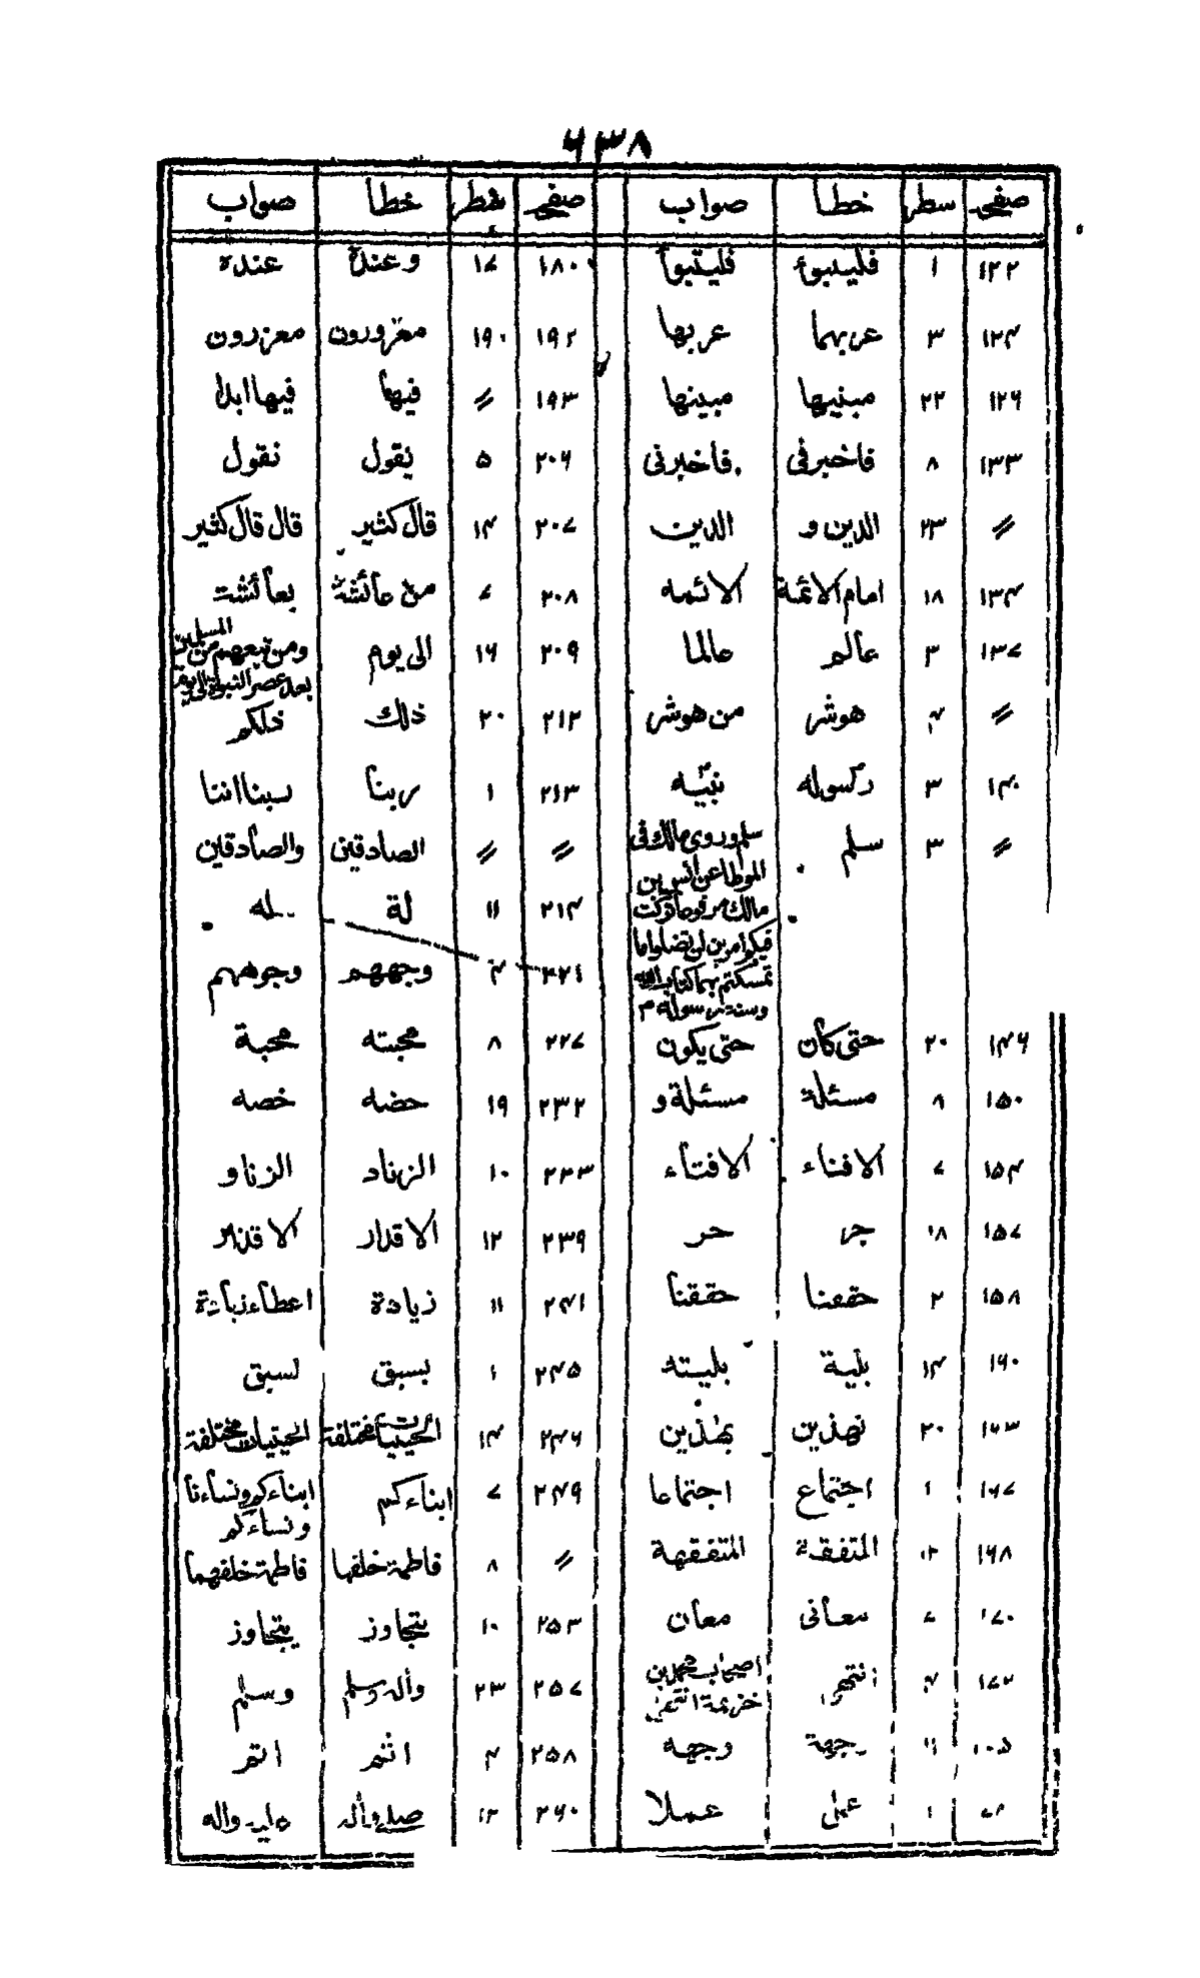 ۶۳۸
صفحه سطر خطا صواب
۱۲۲ ۱ فليتبوء فليتبوأ
۱۲۴ ۳ عربهما عربها
۱۲۶ ۲۲ مبنيها مبينها
۱۳۳ ۸ فاخبرفى فاخبرنى
〃 ۲۳ الدين و الدين
۱۳۴ ۱۸ امام الائمة الائمه
۱۳۷ ۳ عالم عالما
〃 ۴ هوشر من هوشر
۱۴۰ ۳ رسوله نبيّه
〃 ۳ سلم سلم وروى مالك فى
الموطا عن انس بن
مالك مرفوعا تركت
فيكم امرين لن تضلوا ما
تمسكتم بهما كتاب الله
وسنة رسوله م
۱۴۶ ۲۰ حتى كان حتى يكون
۱۵۰ ۸ مسئلة مسئلة و
۱۵۴ ۷ الافناء الافتاء
۱۵۷ ۱۸ جر حر
۱۵۸ ۲ حققنا
۱۶۰ ۱۴ بلية بليته
۱۶۳ ۲۰ نهذين بهذين
۱۶۷ ۱ اجتماع اجتماعا
۱۶۸ ۱۲ المتفقة المتفقهة
۱۷۰ ۷ معانى معان
۱۷۲ ۴ انتهى اصحاب محمد بن
خزيمة انتهى
۱۱ وجهه
۱ على عملا
صفحه سطر خطا صواب
۱۸۰ ۱۷ وعندة عندة
۱۹۲ ۱۹۰ معزورون معزرون
۱۹۳ 〃 فيها فيها ابدا
۲۰۶ ۵ يقول نقول
۲۰۷ ۱۴ قال كثير قال قال كثير
۲۰۸ ۷ من عائشة بعائشة
۲۰۹ ۱۶ الى يوم ومن تبعهم من المسلمين
بعد عصر النبوة الى يوم
۲۱۲ ۲۰ ذلك ذلكم
۲۱۳ ۱ ربنا ربنا اننا
〃 〃 الصادقين والصادقين
۲۱۴ ۱۱ لة له
۲۲۱ ۴ وجههم وجوههم
۲۲۷ ۸ محبته محبة
۲۳۲ ۱۹ حضه خصه
۲۳۳ ۱۰ الزناد الزناو
۲۳۹ ۱۲ الاقدار
۲۴۱ ۱۱ زيادة اعطاء زيادة
۲۴۵ ۱ بسبق لسبق
۲۴۶ ۱۴ الحيثيات مختلفة الحيثيات مختلفة
۲۴۹ ۷ ابناءكم ابناءكم ونساءنا
ونساءكم
〃 ۸ فاطمة خلفها فاطمة خلفهما
۲۵۳ ۱۰ نتجاوز يتجاوز
۲۵۷ ۲۳ واله وسلم وسلم
۲۵۸ ۴ اثم اتم
۲۶۰ ۱۲